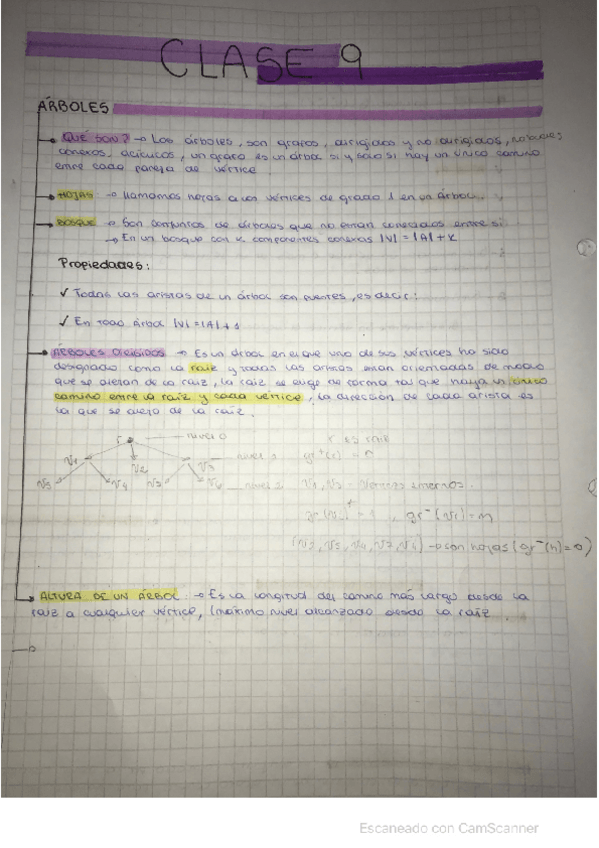 CLASE 9
ÁRBOLES
QUÉ SON? → Los árboles, son grafos, dirigidos y no dirigidos, no bucles,
conexos, acíclicos, un grafo es un árbol si y solo si hay un único camino
entre cada pareja de vértice.
HOJAS: → llamamos hojas a los vértices de grado 1 en un árbol.
BOSQUE → Son conjuntos de árboles que no están conectados entre si
→ En un bosque con k componentes conexas |V| = |A| + k
Propiedades:
✓ Todas las aristas de un árbol son puentes, es decir:
✓ En todo árbol |V| = |A| + 1
ÁRBOLES DIRIGIDOS → Es un árbol en el que uno de sus vértices ha sido
designado como la raíz y todas las aristas están orientadas de modo
que se alejan de la raíz, la raíz se elige de forma tal que haya un único
camino entre la raíz y cada vértice, la dirección de cada arista es
la que se aleja de la raíz.
r nivel 0 r es raíz
V1 V2 V3 nivel 1 gr⁺(r) = n
V5 V4 V7 V6 nivel 2 V1, V3 - vértices internos.
→ son hojas (gr⁻(h) = 0)
ALTURA DE UN ÁRBOL: → Es la longitud del camino más largo desde la
raíz a cualquier vértice, (máximo nivel alcanzado desde la raíz.
Escaneado con CamScanner